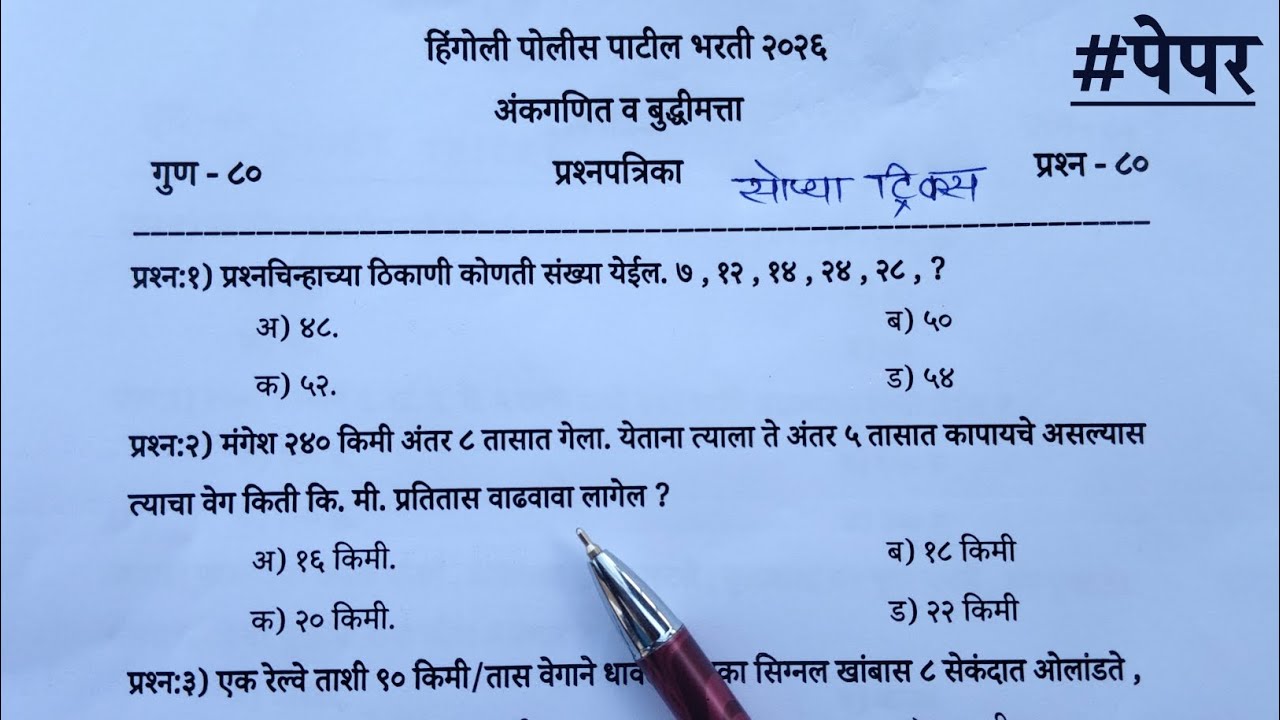 हिंगोली पोलीस पाटील भरती २०२६
#पेपर
अंकगणित व बुद्धीमत्ता
गुण - ८० प्रश्नपत्रिका सोप्या ट्रिक्स प्रश्न - ८०
प्रश्न:१) प्रश्नचिन्हाच्या ठिकाणी कोणती संख्या येईल. ७ , १२ , १४ , २४ , २८ , ?
अ) ४८. ब) ५०
क) ५२. ड) ५४
प्रश्न:२) मंगेश २४० किमी अंतर ८ तासात गेला. येताना त्याला ते अंतर ५ तासात कापायचे असल्यास
त्याचा वेग किती कि. मी. प्रतितास वाढवावा लागेल ?
अ) १६ किमी. ब) १८ किमी
क) २० किमी. ड) २२ किमी
प्रश्न:३) एक रेल्वे ताशी ९० किमी/तास वेगाने सिग्नल खांबास ८ सेकंदात ओलांडते ,